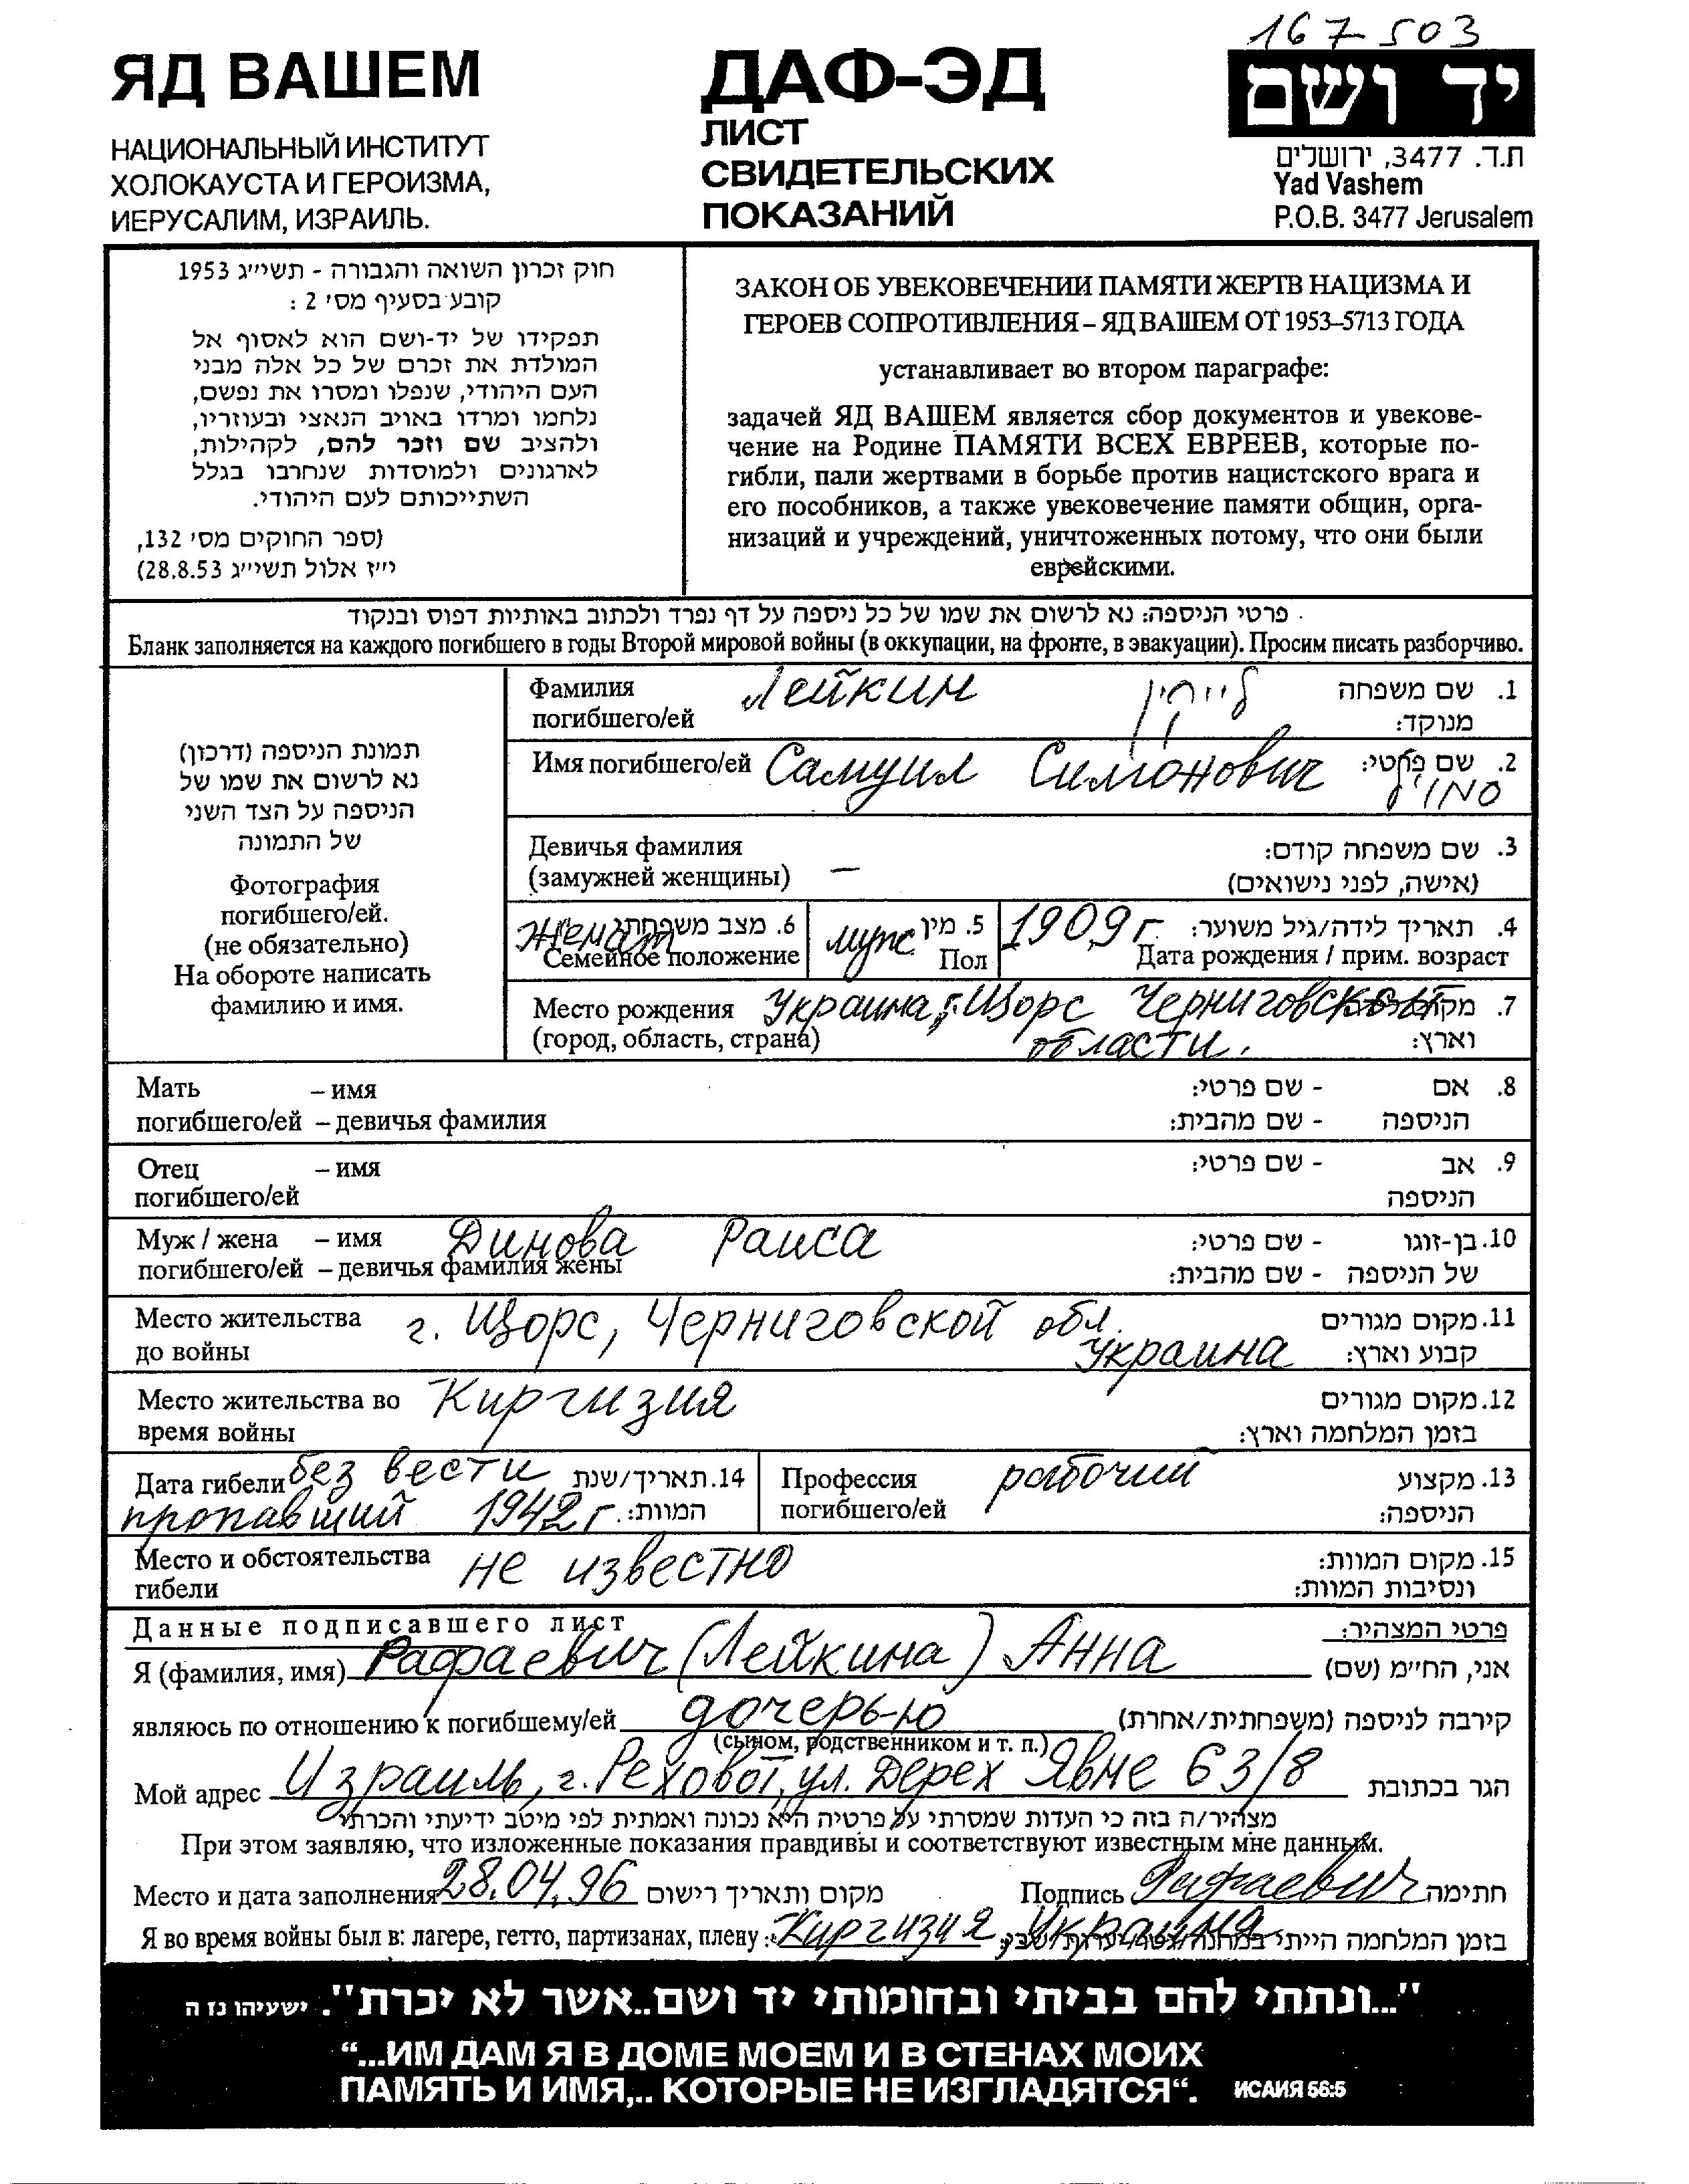 167503
ЯД ВАШЕМ
НАЦИОНАЛЬНЫЙ ИНСТИТУТ
ХОЛОКАУСТА И ГЕРОИЗМА,
ИЕРУСАЛИМ, ИЗРАИЛЬ.
ДАФ-ЭД
ЛИСТ
СВИДЕТЕЛЬСКИХ
ПОКАЗАНИЙ
יד ושם
ת.ד. 3477, ירושלים
Yad Vashem
P.O.B. 3477 Jerusalem
חוק זכרון השואה והגבורה - תשי״ג 1953
קובע בסעיף מס׳ 2 :
תפקידו של יד-ושם הוא לאסוף אל
המולדת את זכרם של כל אלה מבני
העם היהודי, שנפלו ומסרו את נפשם,
נלחמו ומרדו באויב הנאצי ובעוזריו,
ולהציב שם וזכר להם, לקהילות,
לארגונים ולמוסדות שנחרבו בגלל
השתייכותם לעם היהודי.
(ספר החוקים מס׳ 132,
י״ז אלול תשי״ג 28.8.53)
ЗАКОН ОБ УВЕКОВЕЧЕНИИ ПАМЯТИ ЖЕРТВ НАЦИЗМА И
ГЕРОЕВ СОПРОТИВЛЕНИЯ – ЯД ВАШЕМ ОТ 1953–5713 ГОДА
устанавливает во втором параграфе:
задачей ЯД ВАШЕМ является сбор документов и увекове-
чение на Родине ПАМЯТИ ВСЕХ ЕВРЕЕВ, которые по-
гибли, пали жертвами в борьбе против нацистского врага и
его пособников, а также увековечение памяти общин, орга-
низаций и учреждений, уничтоженных потому, что они были
еврейскими.
פרטי הניספה: נא לרשום את שמו של כל ניספה על דף נפרד ולכתוב באותיות דפוס ובנקוד
Бланк заполняется на каждого погибшего в годы Второй мировой войны (в оккупации, на фронте, в эвакуации). Просим писать разборчиво.
תמונת הניספה (דרכון)
נא לרשום את שמו של
הניספה על הצד השני
של התמונה
Фотография
погибшего/ей.
(не обязательно)
На обороте написать
фамилию и имя.
Фамилия Лейкин לייקין 1. שם משפחה
погибшего/ей מנוקד:
Имя погибшего/ей Самуил Симонович 2. שם פרטי:
סמויל
Девичья фамилия 3. שם משפחה קודם:
(замужней женщины) — (אישה, לפני נישואים)
женат 6. מצב משפחתי муж 5. מין 1909 г. 4. תאריך לידה/גיל משוער:
Семейное положение Пол Дата рождения / прим. возраст
Место рождения Украина, г. Щорс Черниговской 7. מקום לידה
(город, область, страна) области. וארץ:
Мать – имя 8. אם - שם פרטי:
погибшего/ей – девичья фамилия הניספה - שם מהבית:
Отец – имя 9. אב - שם פרטי:
погибшего/ей הניספה
Муж / жена – имя Динова Раиса 10. בן-זוגו - שם פרטי:
погибшего/ей – девичья фамилия жены של הניספה - שם מהבית:
Место жительства г. Щорс, Черниговской обл. 11. מקום מגורים
до войны Украина קבוע וארץ:
Место жительства во Киргизия 12. מקום מגורים
время войны בזמן המלחמה וארץ:
Дата гибели без вести 14. תאריך/שנת Профессия рабочий 13. מקצוע
пропавший 1942 г. המוות: погибшего/ей הניספה:
Место и обстоятельства не известно 15. מקום המוות:
гибели ונסיבות המוות:
Данные подписавшего лист פרטי המצהיר:
Я (фамилия, имя) Рафаевич (Лейкина) Анна אני, החי״מ (שם)
являюсь по отношению к погибшему/ей дочерью קירבה לניספה (משפחתית/אחרת)
(сыном, родственником и т. п.)
Мой адрес Израиль, г. Реховот, ул. Дерех Явне 63/8 הגר בכתובת
מצהיר/ה בזה כי העדות שמסרתי על פרטיה היא נכונה ואמתית לפי מיטב ידיעתי והכרתי
При этом заявляю, что изложенные показания правдивы и соответствуют известным мне данным.
Место и дата заполнения 28.04.96 מקום ותאריך רישום Подпись Рафаевич חתימה
Я во время войны был в: лагере, гетто, партизанах, плену: Киргизия, Украина בזמן המלחמה הייתי במחנה/גטו/יערות/שבי:
"...ונתתי להם בביתי ובחומותי יד ושם..אשר לא יכרת". ישעיהו נז ה
“...ИМ ДАМ Я В ДОМЕ МОЕМ И В СТЕНАХ МОИХ
ПАМЯТЬ И ИМЯ,.. КОТОРЫЕ НЕ ИЗГЛАДЯТСЯ“. ИСАИЯ 56:5